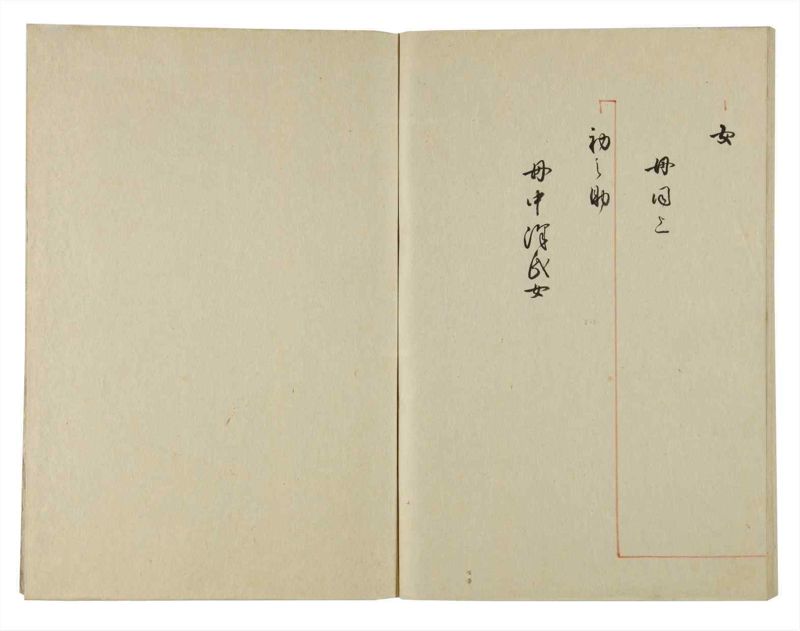 女
母同上
初之助
母中澤氏女